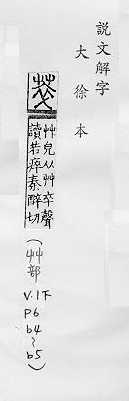 說文解字
大徐本
萃
艸皃从艸卒聲
讀若瘁秦醉切
(艸部
V.1下
P6
b4~
b5)